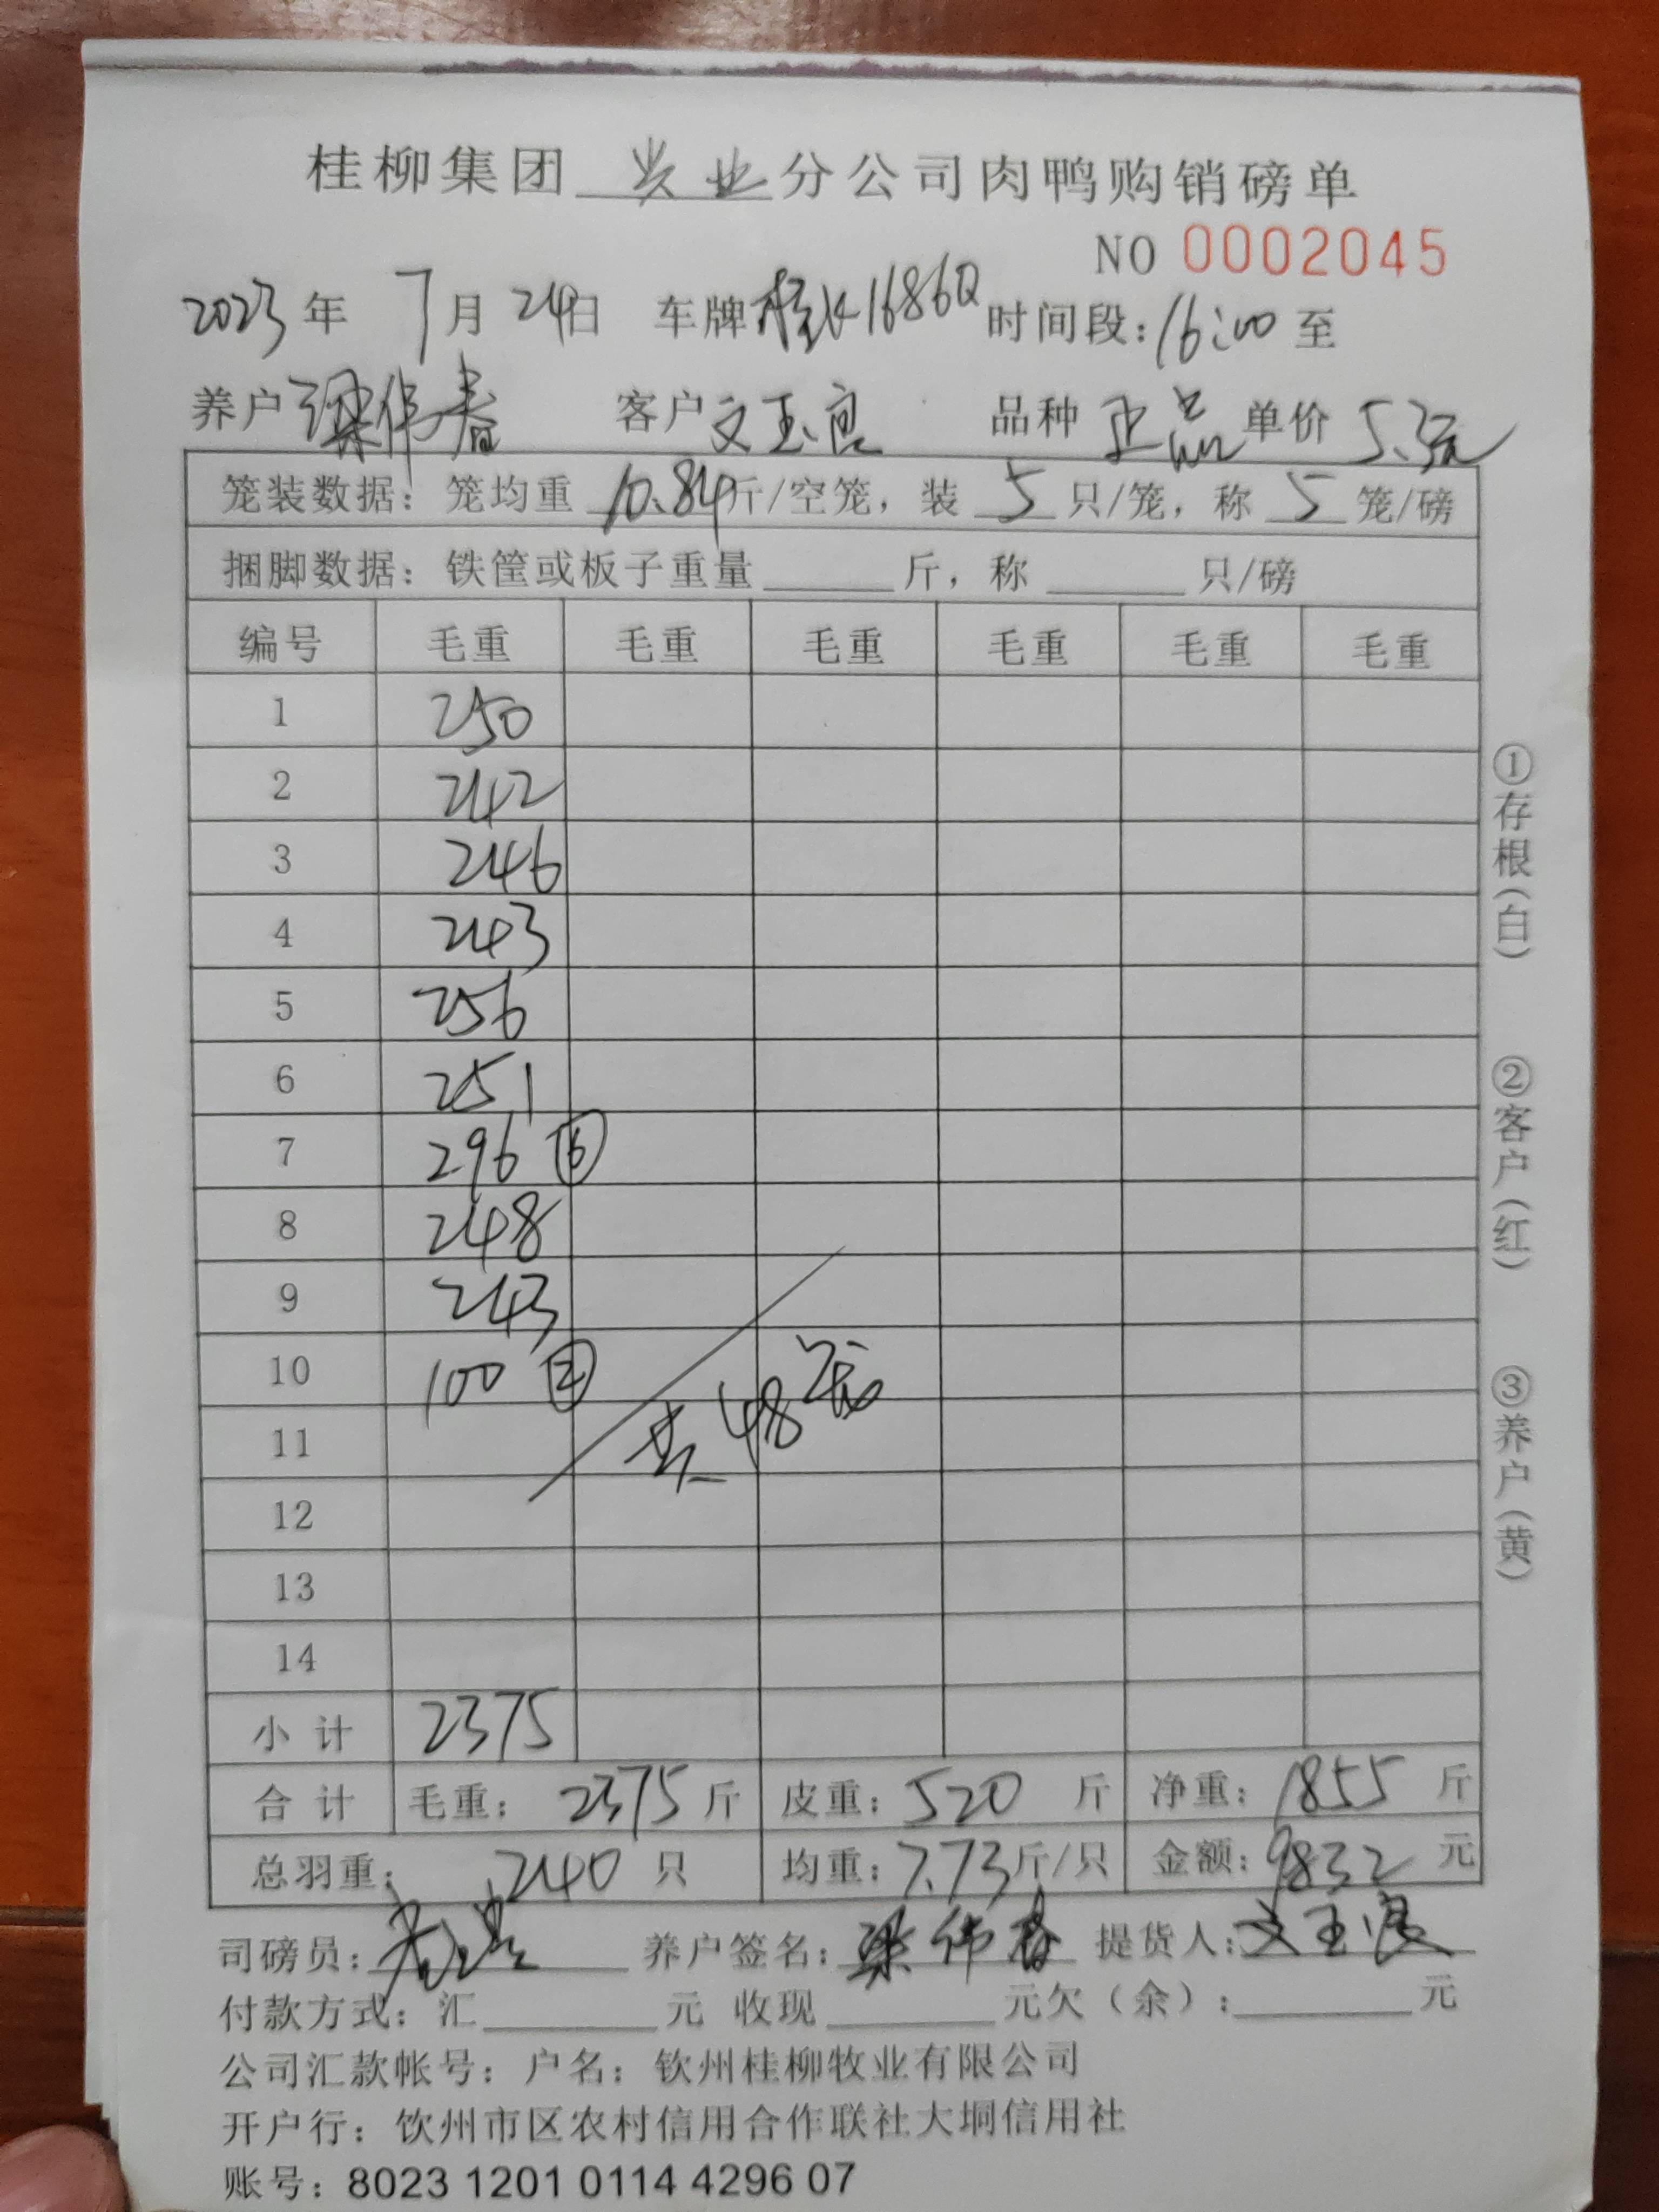 桂柳集团 兴业 分公司肉鸭购销磅单
NO 0002045
2023 年 7 月 24 日 车牌 桂K1686Q 时间段: 16:00 至
养户 梁伟春 客户 文玉良 品种 正品 单价 5.3元
笼装数据: 笼均重 10.84 斤/空笼, 装 5 只/笼, 称 5 笼/磅
捆脚数据: 铁筐或板子重量 斤, 称 只/磅
编号 毛重 毛重 毛重 毛重 毛重 毛重
1 250
2 242
3 246
4 243
5 256
6 251
7 296 ⑥
8 248
9 243
10 100 ②
共48笼
11
12
13
14
小计 2375
合计 毛重: 2375 斤 皮重: 520 斤 净重: 1855 斤
总羽重: 240 只 均重: 7.73 斤/只 金额: 9832 元
司磅员: 养户签名: 梁伟春 提货人: 文玉良
付款方式: 汇 元 收现 元欠(余): 元
公司汇款帐号: 户名: 钦州桂柳牧业有限公司
开户行: 钦州市区农村信用合作联社大垌信用社
账号: 8023 1201 0114 4296 07
①存根(白)
②客户(红)
③养户(黄)